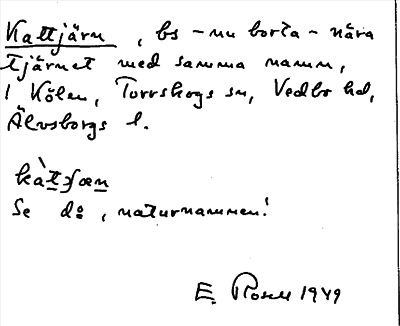 Kattjärn, bs - nu borta - nära
tjärnet med samma namn,
i Kölen, Torrskogs sn, Vedbo hd,
Älvsborgs l.
Se d:o, naturnamnen!
E. Rosell 1949